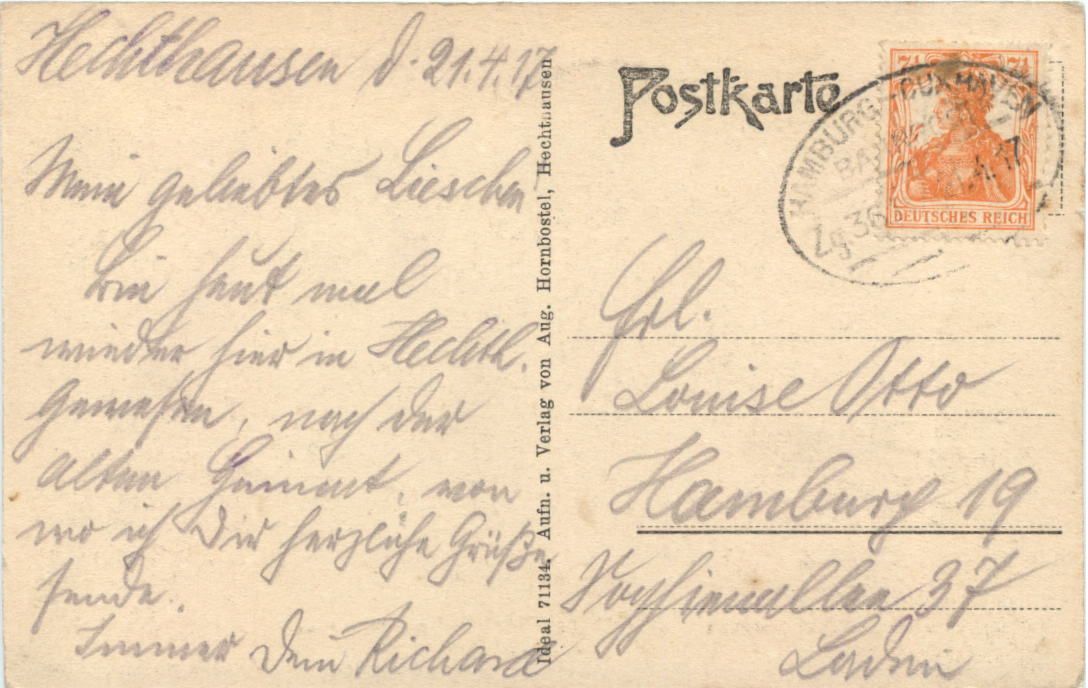 Hechthausen d. 21.4.17
Mein geliebtes Lieschen
Bin heut mal
wieder hier in Hechth.
gewesen, nach der
alten Heimat, von
wo ich Dir herzliche Grüße
sende.
Immer Dein Richard
Ideal 71134. Aufn. u. Verlag von Aug. Hornbostel, Hechthausen
Postkarte
7½ 7½
DEUTSCHES REICH
HAMBURG-CUXHAVEN
BAHNPOST
Zg 36
.4.17
Frl.
Louise Otto
Hamburg 19
Sophienallee 37
Laden